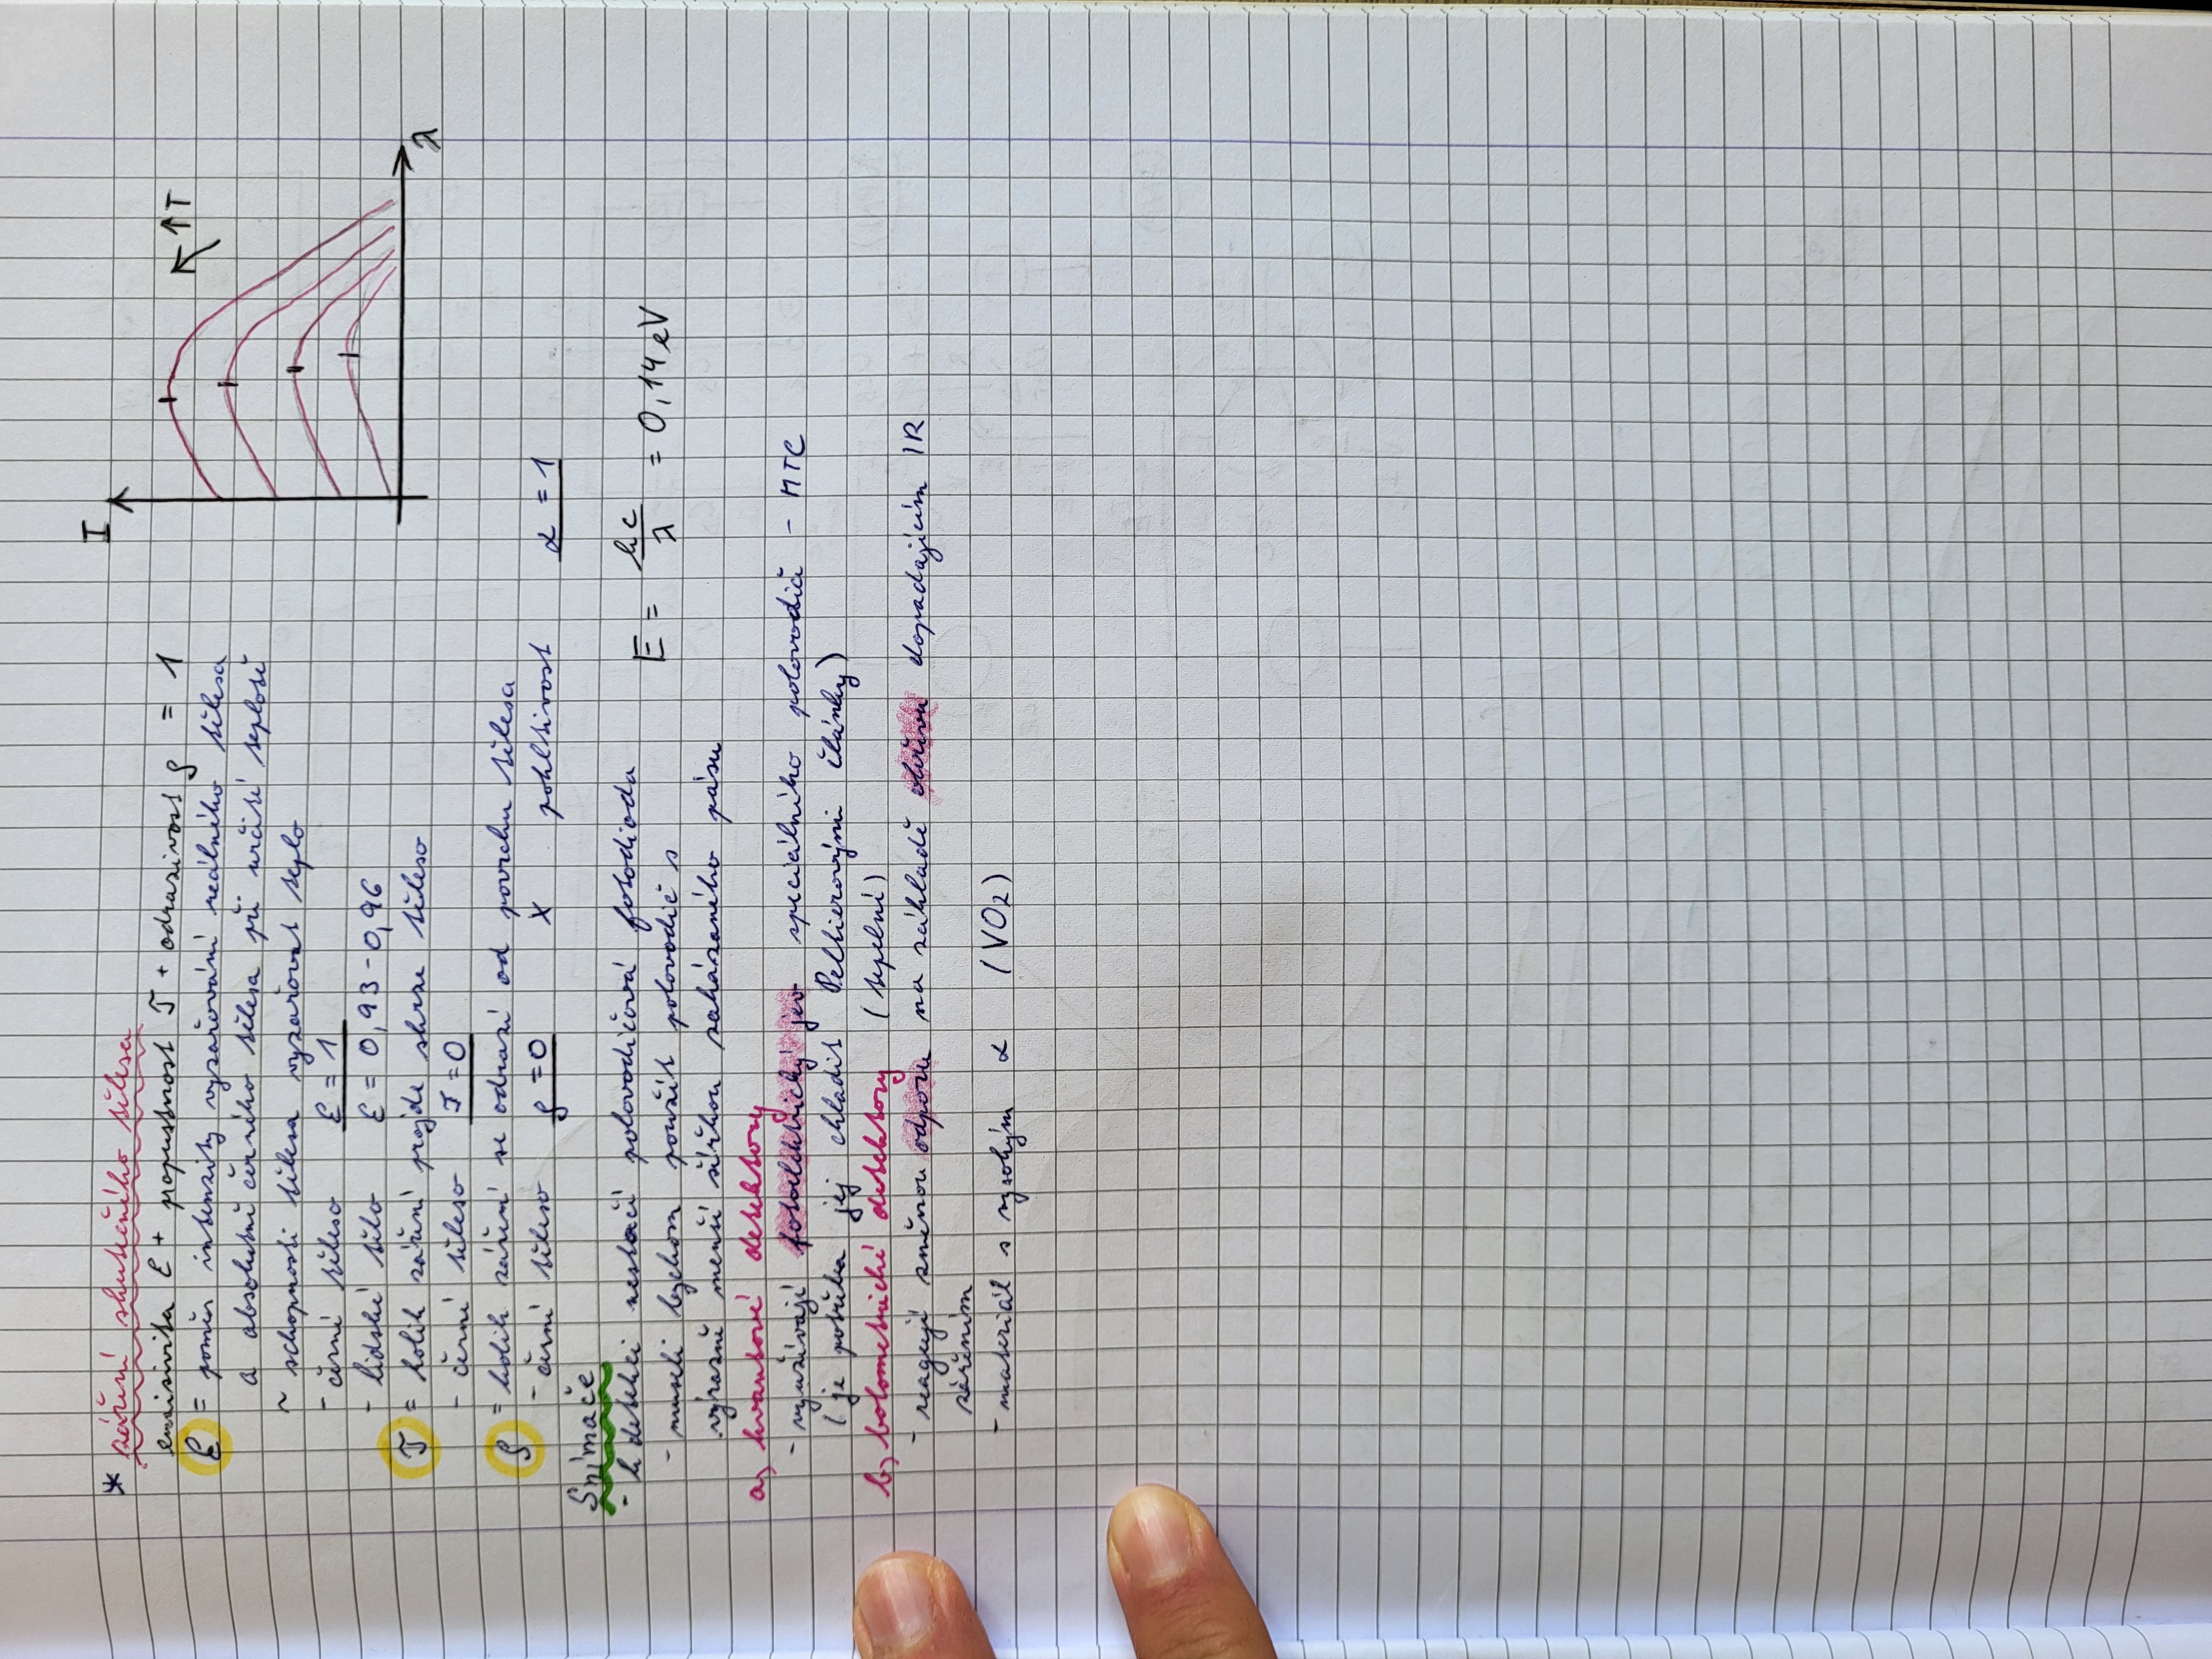 * záření skutečného tělesa
emisivita ε + propustnost T + odrazivost ρ = 1
ε = poměr intenzity vyzařování reálného tělesa
a absolutně černého tělesa při určité teplotě
~ schopnosti tělesa vyzařovat teplo
- černé těleso ε = 1
- lidské tělo ε = 0,93 - 0,96
T = kolik záření projde skrze těleso
- černé těleso T = 0
ρ = kolik záření se odrazí od povrchu tělesa
- černé těleso ρ = 0 x pohltivost α = 1
I
↑T
λ
Snímače
- k detekci nestačí polovodičová fotodioda
E = hc/λ = 0,14 eV
- museli bychom použít polovodič s
výrazně menší šířkou zakázaného pásu
a) kvantové detektory
- využívají fotoelektrický jev speciálního polovodič - MTC
(je potřeba jej chladit Peltierovými články)
b) bolometrické detektory (tepelné)
- reagují změnou odporu na základě ohřevu dopadajícím IR
zářením
- materiál s vysokým α (VO2)